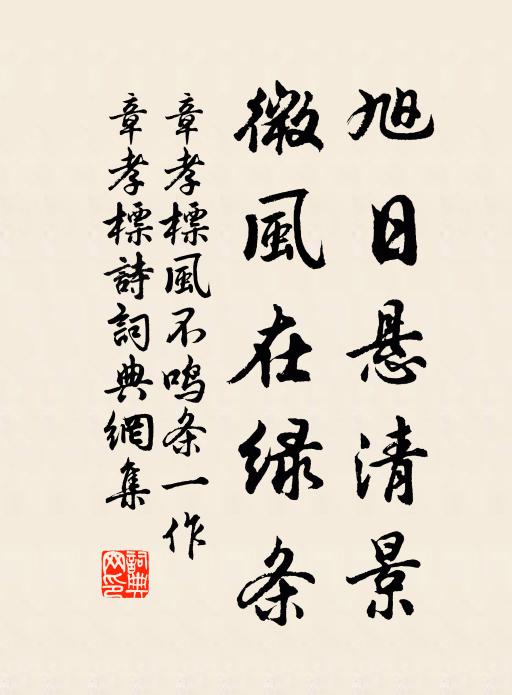 旭日悬清景
微風在绿条
章孝標風不鸣条一作
章孝標詩詞典網集
詞典
网印